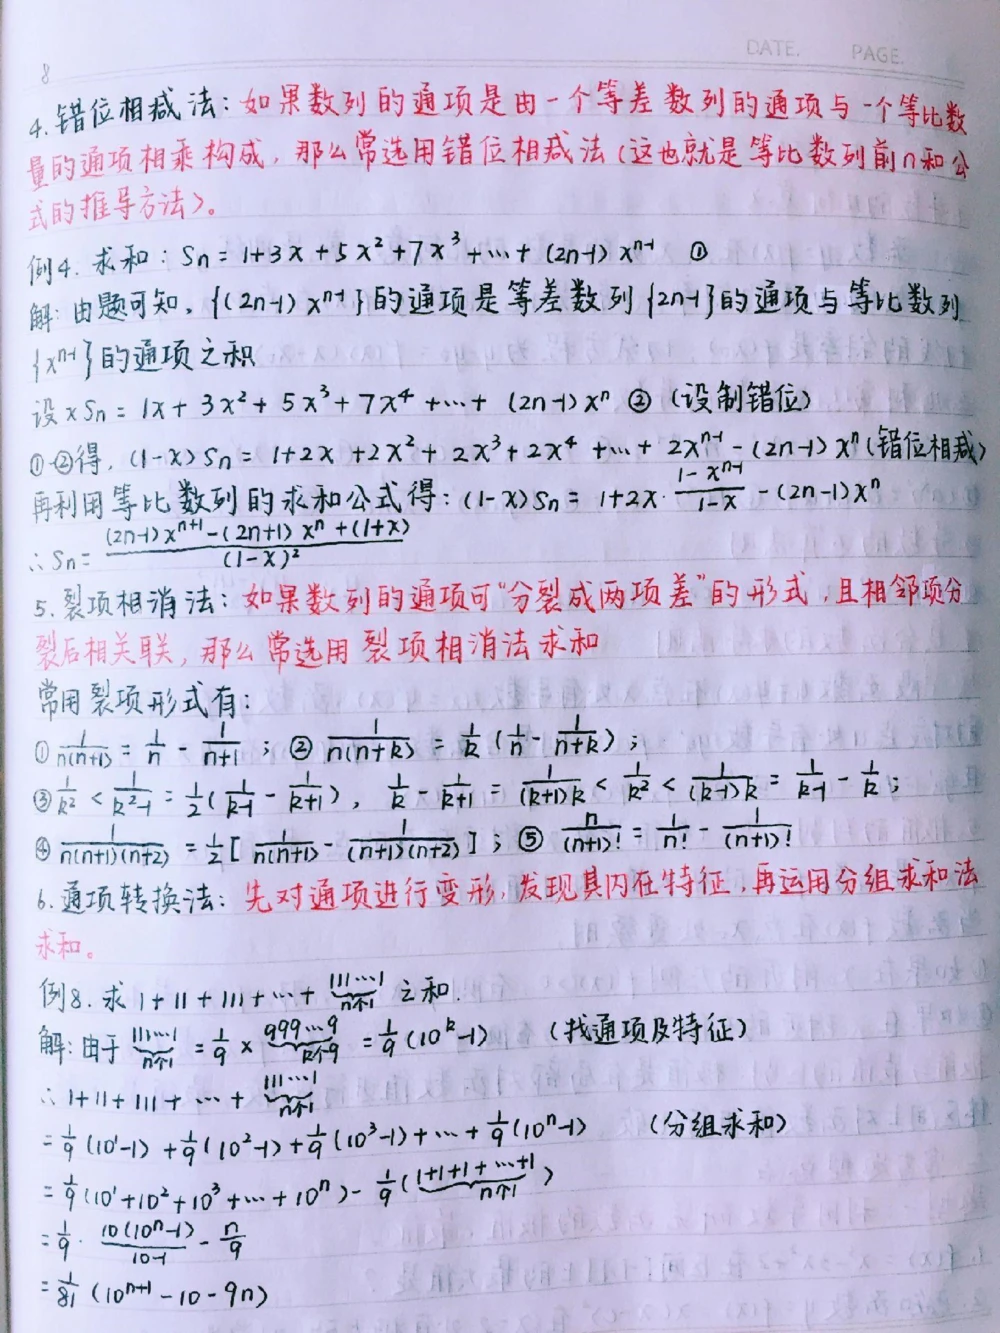 DATE. PAGE.
8
4.错位相减法:如果数列的通项是由一个等差数列的通项与一个等比数
量的通项相乘构成,那么常选用错位相减法(这也就是等比数列前n和公
式的推导方法)。
例4.求和:Sn=1+3x+5x²+7x³+…+(2n-1)xⁿ⁻¹ ①
解:由题可知,{(2n-1)xⁿ⁻¹}的通项是等差数列{2n-1}的通项与等比数列
{xⁿ⁻¹}的通项之积
设xSn=1x+3x²+5x³+7x⁴+…+(2n-1)xⁿ ②(设制错位)
①-②得,(1-x)Sn=1+2x+2x²+2x³+2x⁴+…+2xⁿ⁻¹-(2n-1)xⁿ(错位相减)
再利用等比数列的求和公式得:(1-x)Sn=1+2x·\frac{1-xⁿ⁻¹}{1-x}-(2n-1)xⁿ
∴Sn=\frac{(2n-1)xⁿ⁺¹-(2n+1)xⁿ+(1+x)}{(1-x)²}
5.裂项相消法:如果数列的通项可"分裂成两项差"的形式,且相邻项分
裂后相关联,那么常选用裂项相消法求和
常用裂项形式有:
①\frac{1}{n(n+1)}=\frac{1}{n}-\frac{1}{n+1};②\frac{1}{n(n+k)}=\frac{1}{k}(\frac{1}{n}-\frac{1}{n+k});
③\frac{1}{k²}<\frac{1}{k²-1}=\frac{1}{2}(\frac{1}{k-1}-\frac{1}{k+1}),\frac{1}{k}-\frac{1}{k+1}=\frac{1}{(k+1)k}<\frac{1}{k²}<\frac{1}{(k-1)k}=\frac{1}{k-1}-\frac{1}{k};
④\frac{1}{n(n+1)(n+2)}=\frac{1}{2}[\frac{1}{n(n+1)}-\frac{1}{(n+1)(n+2)}];⑤\frac{n}{(n+1)!}=\frac{1}{n!}-\frac{1}{(n+1)!}
6.通项转换法:先对通项进行变形,发现其内在特征,再运用分组求和法
求和。
例8.求1+11+111+…+\underbrace{111…1}_{n个1}之和.
解:由于\underbrace{111…1}_{n个1}=\frac{1}{9}×\underbrace{999…9}_{k个9}=\frac{1}{9}(10ᵏ-1) (找通项及特征)
∴1+11+111+…+\underbrace{111…1}_{n个1}
=\frac{1}{9}(10¹-1)+\frac{1}{9}(10²-1)+\frac{1}{9}(10³-1)+…+\frac{1}{9}(10ⁿ-1) (分组求和)
=\frac{1}{9}(10¹+10²+10³+…+10ⁿ)-\frac{1}{9}(\underbrace{1+1+1+…+1}_{n个1})
=\frac{1}{9}·\frac{10(10ⁿ-1)}{10-1}-\frac{n}{9}
=\frac{1}{81}(10ⁿ⁺¹-10-9n)